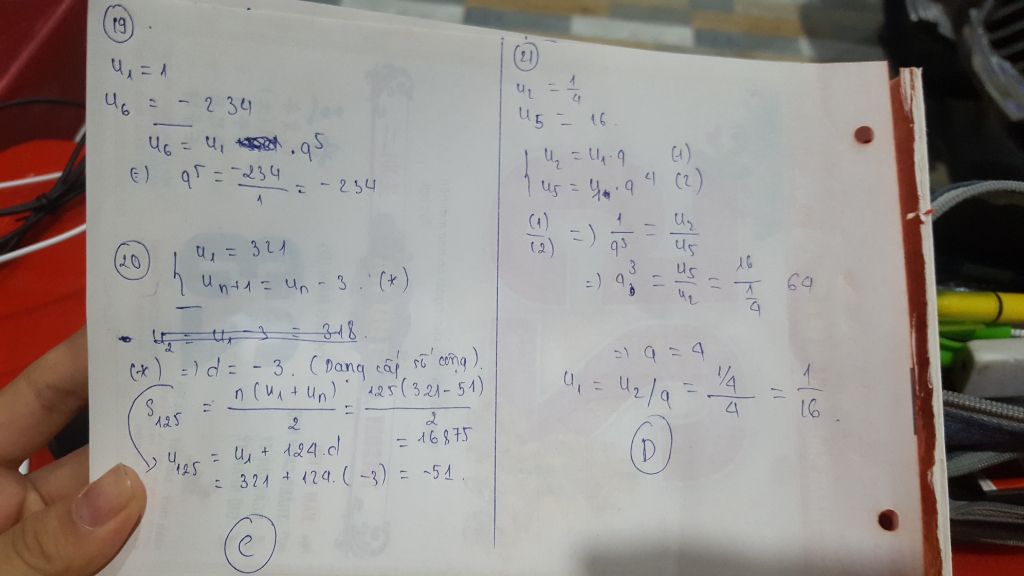 19
u₁ = 1
u₆ = - 234
u₆ = u₁ . q⁵
(=) q⁵ = -234/1 = - 234
20
{ u₁ = 321
uₙ₊₁ = uₙ - 3 . (*)
u₂ = u₁ - 3 = 318.
(*) =) d = - 3. (Dạng cấp số cộng).
S₁₂₅ = n(u₁ + uₙ)/2 = 125(321-51)/2
= 16875
u₁₂₅ = u₁ + 124.d
= 321 + 124.(-3) = -51.
C
21
u₂ = 1/4
u₅ = 16.
{ u₂ = u₁.q (1)
u₅ = u₁.q⁴ (2)
(1)/(2) =) 1/q³ = u₂/u₅
=) q³ = u₅/u₂ = 16/(1/4) 64
=) q = 4
u₁ = u₂/q = (1/4)/4 = 1/16.
D